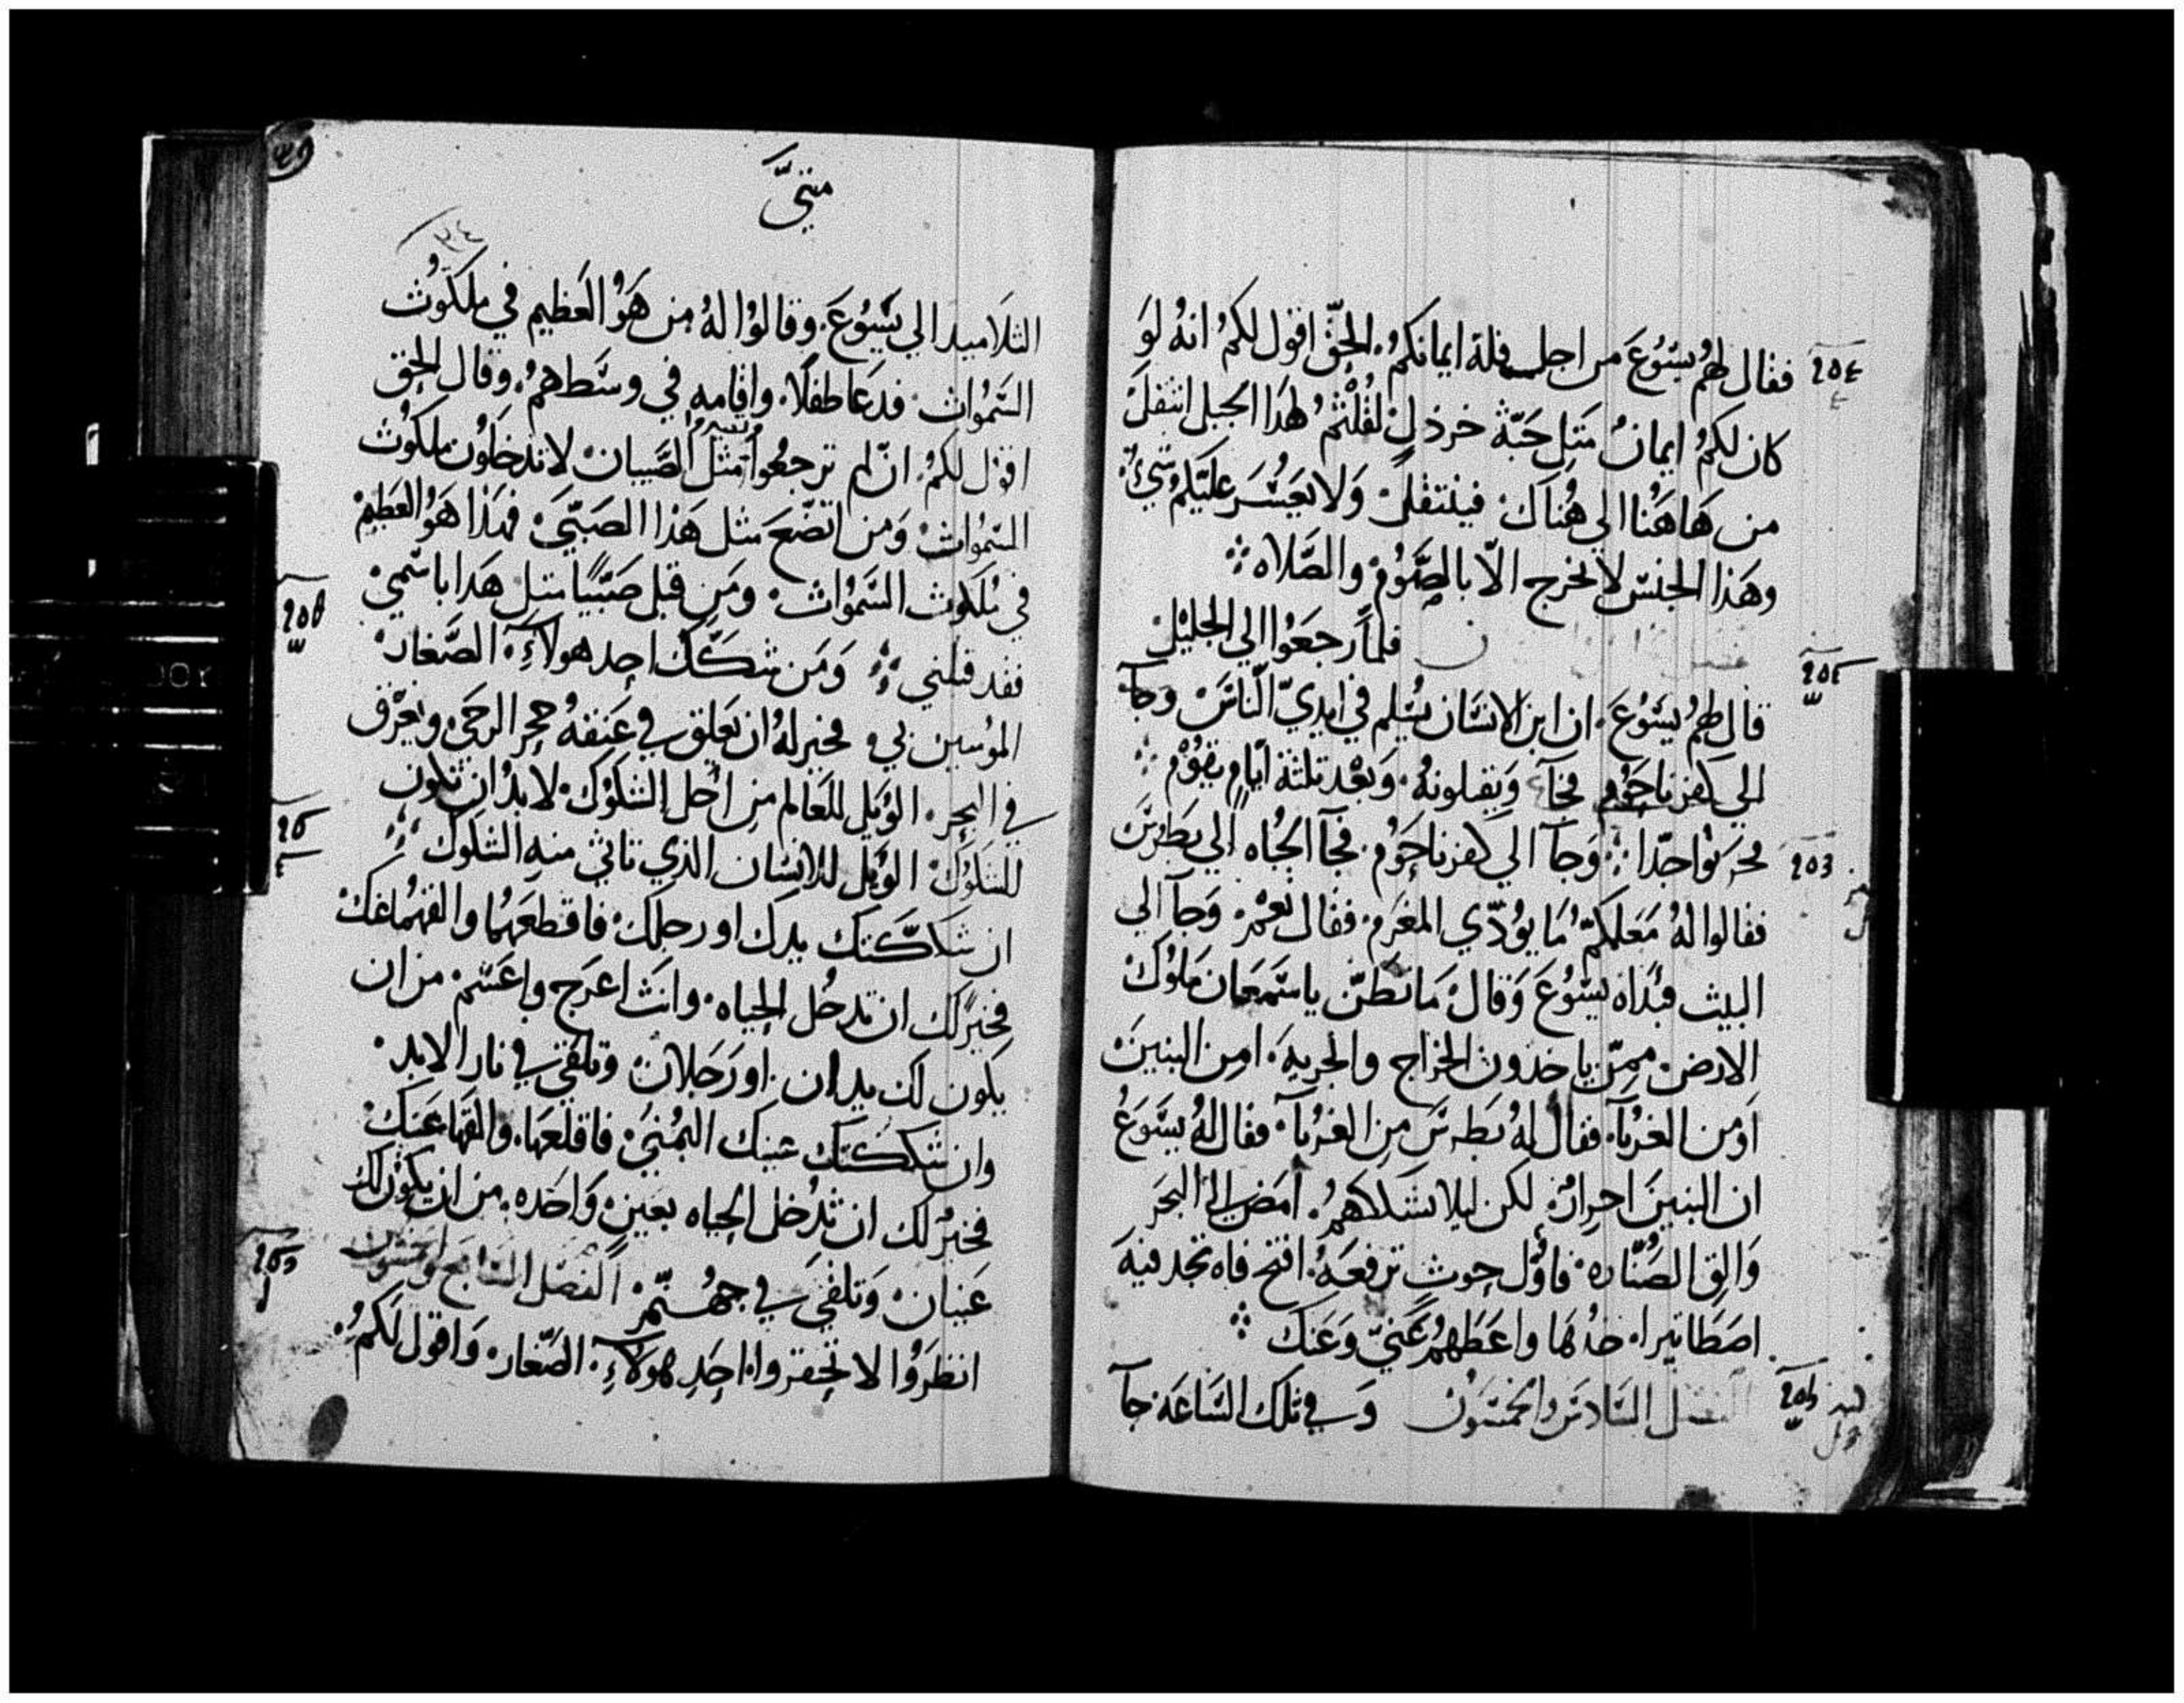 فقال لهم يسوع من اجل قلة ايمانكم. الحق اقول لكم انه لو
كان لكم ايمان مثل حبة خردل لقلتم لهذا الجبل انتقل
من هاهنا الي هناك فينتقل ولا يعسر عليكم شي
وهذا الجنس لا يخرج الا بالصوم والصلاه
فلما رجعوا الي الجليل
قال لهم يسوع. ان ابن الانسان يسلم في ايدي الناس وجآ
الي كفرناحوم فجآ ويقتلونه. وبعد تلتة ايام يقوم
فحزنوا جدا وجآ الي كفرناحوم. فجآ الجباه الي بطرس
فقالوا له معلمكم ما يودي المغرم. فقال نعم. وجآ الي
البيت فبداه يسوع وقال ما تظن يا سمعان ملوك
الارض ممن ياخدون الخراج والجزيه. امن البنين
او من الغربآ. فقال له بطرس من الغربآ. فقال له يسوع
ان البنين احرار. لكن ليلا نشككهم. امض الي البحر
والق الصناره. فاول حوت ترفعه. افتح فاه تجد فيه
اصطاتيرا. خدها واعطهم عني وعنك
الفصل السادس والخمسون وفي تلك الساعه جآ
متي
٣٤
التلاميد الي يسوع. وقالوا له من هو العظيم في ملكوت
السموات. فدعا طفلا. واقامه في وسطهم. وقال الحق
اقول لكم. ان لم ترجعوا مثل الصبيان لا تدخلون ملكوت
السموات ومن اتضع مثل هذا الصبي فهذا هو العظيم
في ملكوت السموات. ومن قبل صبيا متل هدا باسمي
فقد قبلني ومن شكك احد هولآء الصغار
المومنين بي فخير له ان يعلق في عنقه حجر الرحي ويغرق
في البحر. الويل للعالم من اجل الشكوك. لا بد ان تكون
الشكوك الويل للانسان الدي تاتي منه الشكوك
ان شككتك يدك او رجلك فاقطعهما والقهما عنك
فخير لك ان تدخل الحياه. وانت اعرج واعسم من ان
يكون لك يدان. او رجلان وتلقي في نار الابد.
وان شككتك عينك اليمني. فاقلعها. والقها عنك
فخير لك ان تدخل الحياه بعين واحده. من ان يكون لك
عينان وتلقي في جهنم الفصل السابع والخمسون
انظروا لا تحقروا. احد هولآء. الصغار. واقول لكم.